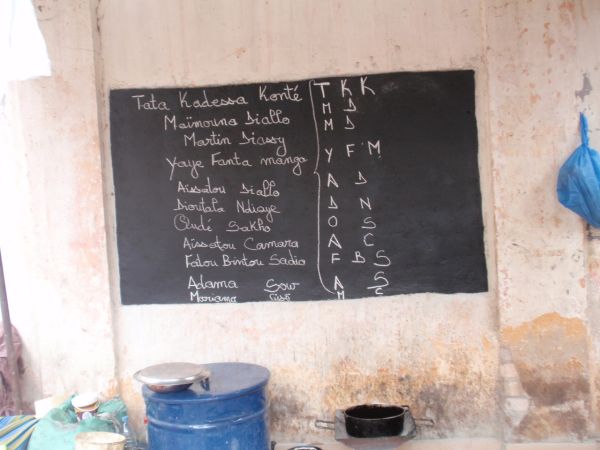 Tata Kadessa Konté T K K
Maïmouna Diallo M D
Martin Diassy M D
Yaye Fanta manga Y F M
Aïssatou Diallo A D
Dioutala Ndiaye D N
Oludé Sakho O S
Aïssatou Camara A C
Fatou Bintou Sadio F B S
Adama Sow A S
Mariama Cissé M C